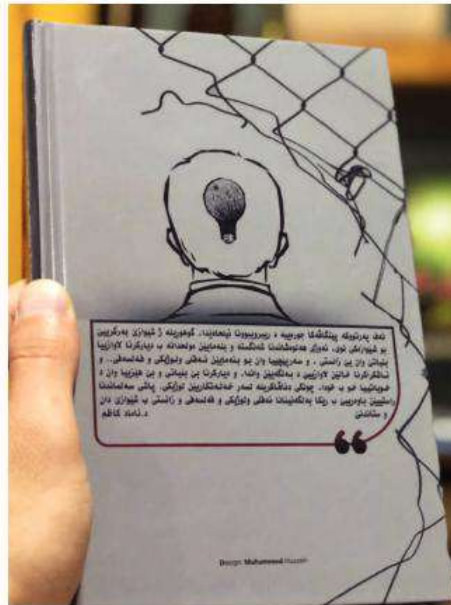 ئەڤ پەرتووکە پێنگاڤەکا جورییە د ریبروبوونا ئیلحادێدا. گوهورینە ژ شیوازێ بەرگریێ
بو شیوازەکی نوی، ئەوژی هەلوەشاندنا کەڤلستە و بنەمایێن مولحدانە ب دیارکرنا لاوازییا
بنیاتی وان یێ زانستی، و سەرپێچییا وان بو بنەمایێن ئەقلی ولوژیکی و فەلسەفی. و
ئاشکراکرنا خالێن لاوازیێ د بەلگەیێن واندا. و دیارکرنا بێ بنیاتی و بێ هێزییا وان د
خوباتییا خو ب خودا. چونکی دناڤاکرینە لسەر خەلەتکاریێن لوژیکی. پاشی سەلماندنا
راستیێن باوەریێ ب ریکا بەلگەیێنا ئەقلی ولوژیکی و فەلسەفی و زانستی ب شیوازێ دان
و ستاندنێ
د.ئاماد کاظم
Design: Muhammed Hussein